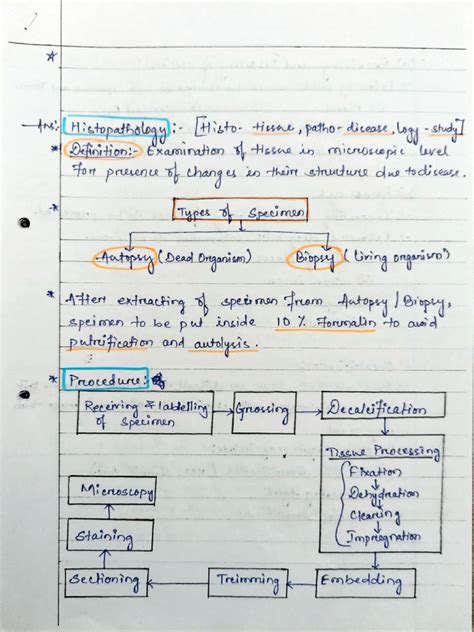 Ans:- Histopathology:- [Histo- tissue, patho- disease, logy- study]
* Definition:- Examination of tissue in microscopic level
For presence of changes in their structure due to disease.
Types of Specimen
Autopsy (Dead Organism)
Biopsy (Living organism)
* After extracting of specimen from Autopsy/Biopsy,
specimen to be put inside 10% Formalin to avoid
putrification and autolysis.
* Procedure:-
Receiving & labelling
of specimen
Grossing
Decalcification
Tissue Processing
Fixation
Dehydration
Clearing
Impregnation
Embedding
Trimming
Sectioning
Staining
Microscopy